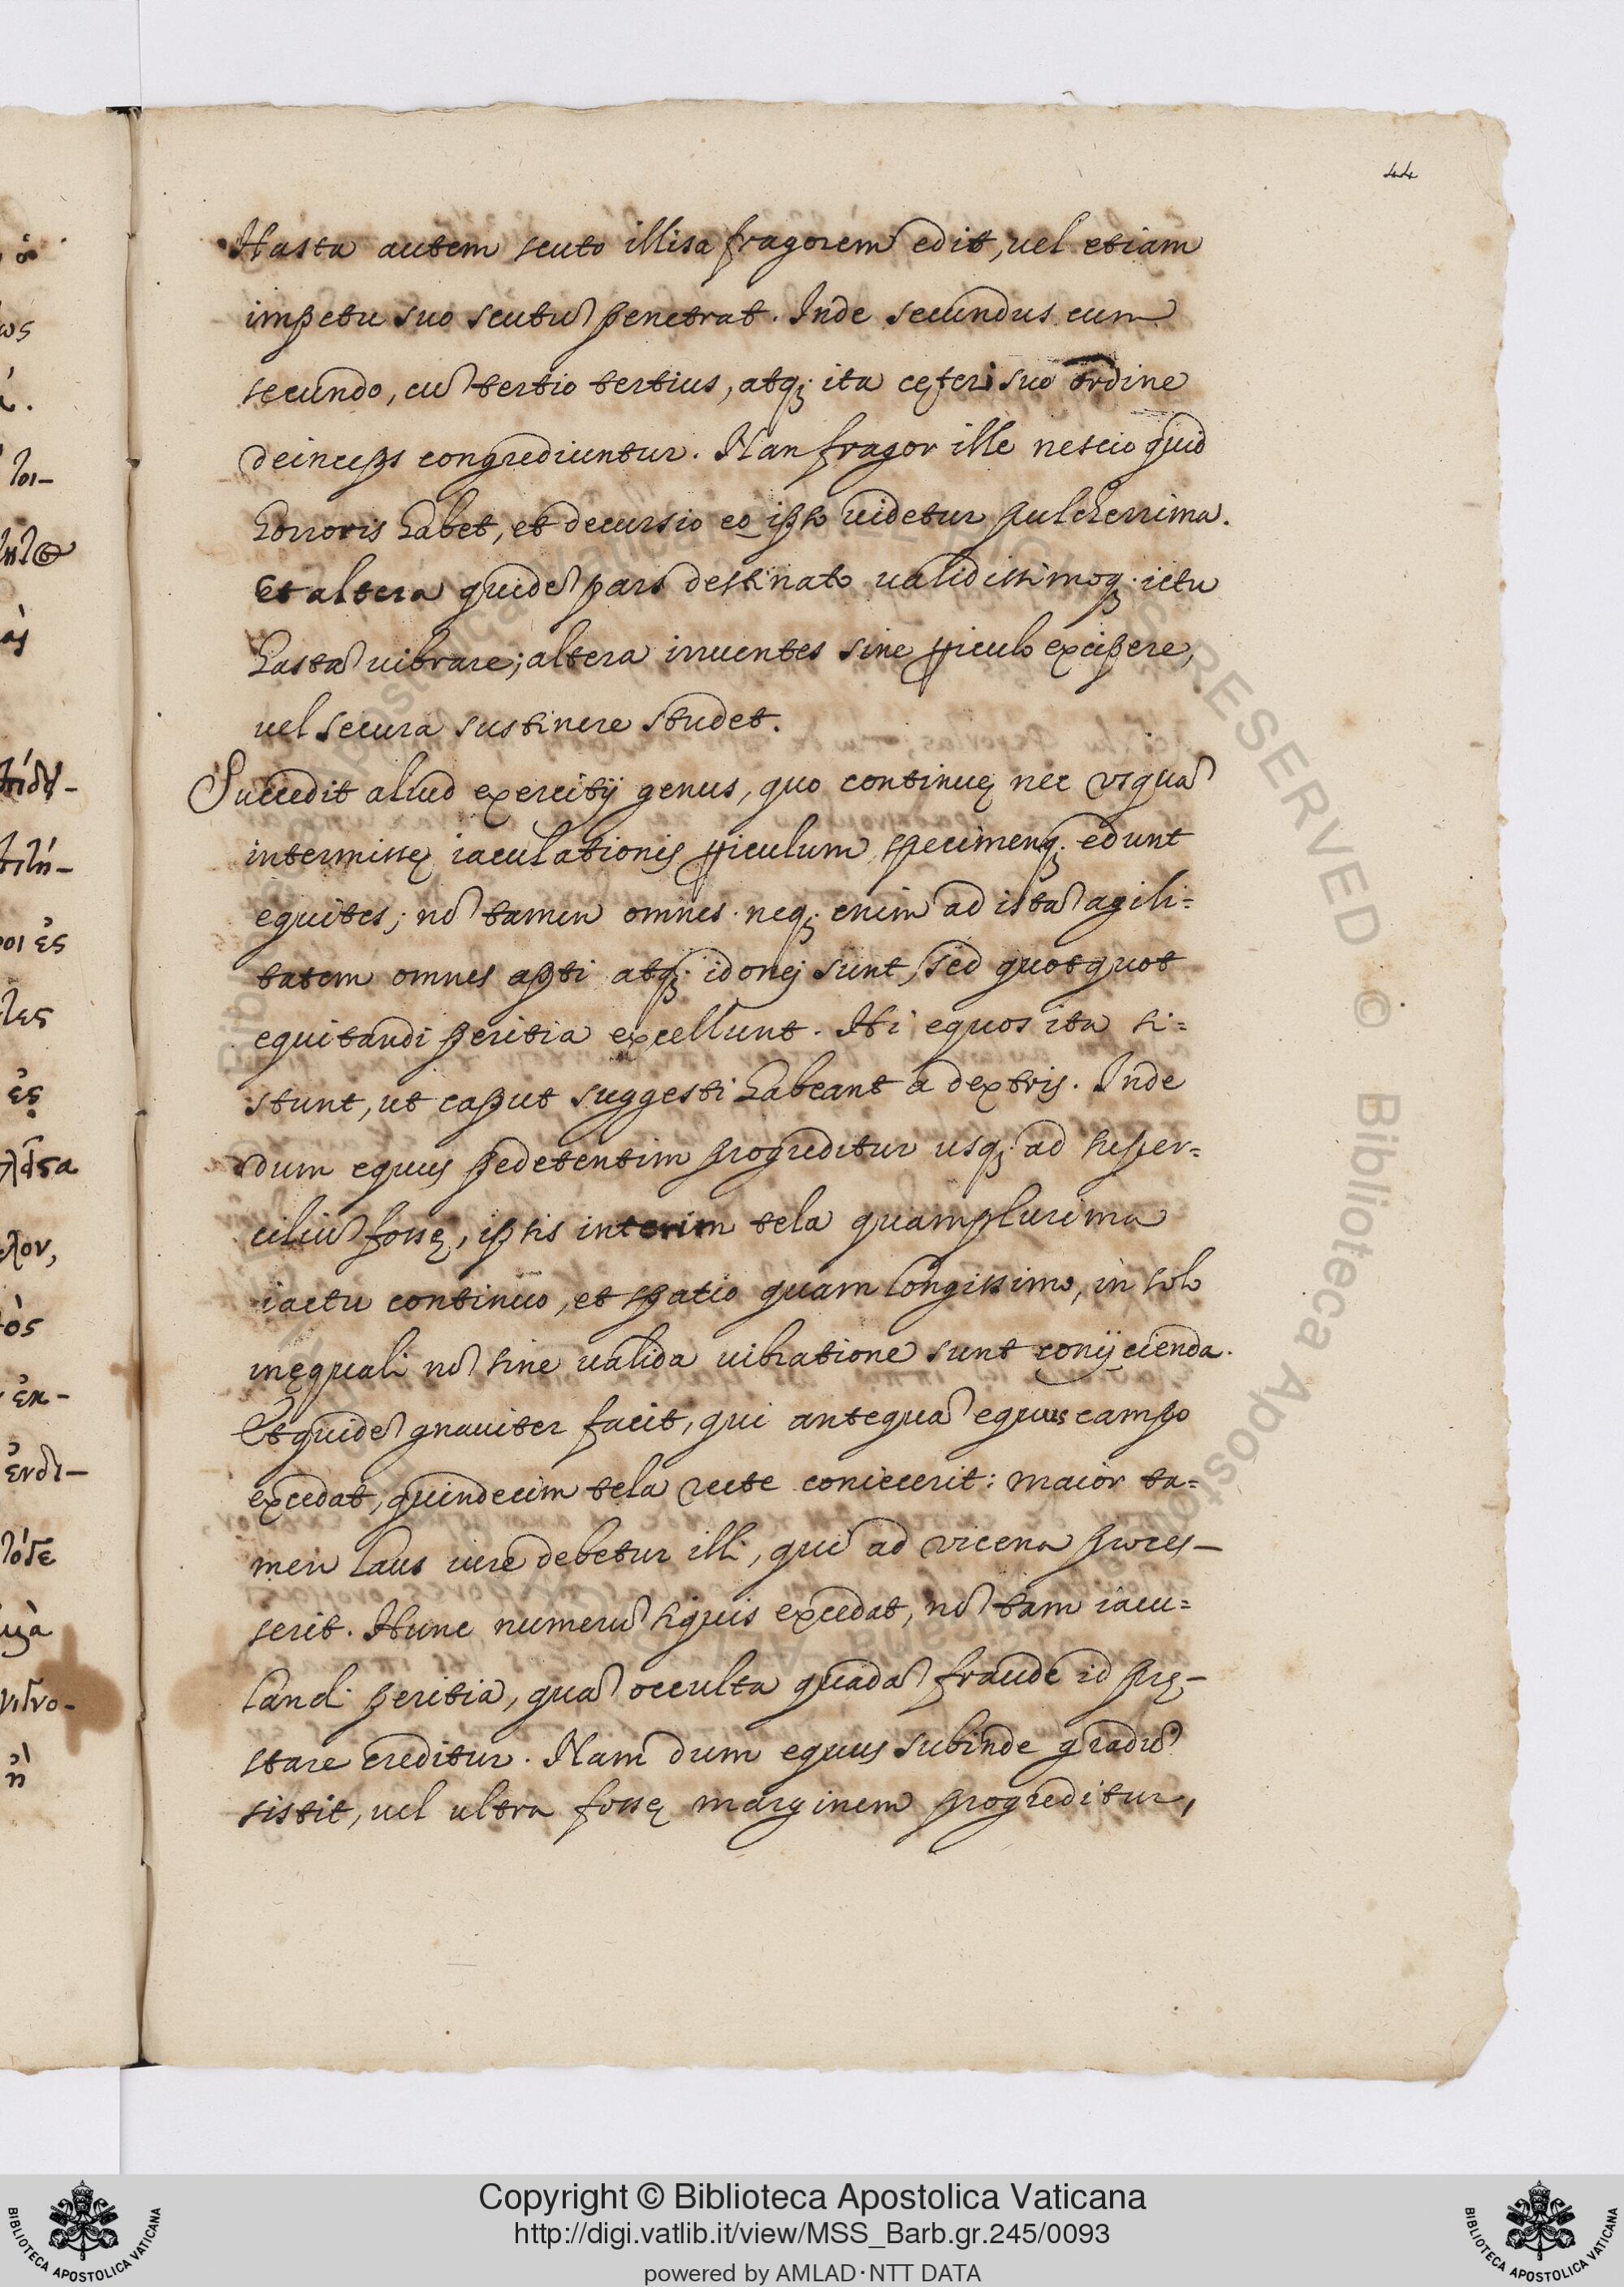 44
Hasta autem scuto illisa fragorem edit, uel etiam
impetu suo scutũ penetrat. Inde secundus cum
secundo, cũ tertio tertius, atq; ita cęteri suo ordine
deinceps congrediuntur. Nan fragor ille nescio quid
horroris habet, et decursio eo ipso uidetur pulcherrima.
Et altera quidẽ pars destinato ualidissimoq; ictu
hastã uibrare; altera irruentes sine ꝑiculo excipere,
uel secura sustinere studet.
Succedit aliud exercitij genus, quo continuę nec usquã
intermissę iaculationis ꝑiculum specimenq; edunt
equites; nõ tamen omnes. neq; enim ad istã agili=
tatem omnes apti atq; idonej sunt, sed quotquot
equitandi peritia excellunt. Hi equos ita si=
stunt, ut caput suggesti habeant a dextris. Inde
dum equus pedetentim progreditur usq; ad super=
ciliũ fossę, ipsis interim tela quamplurima
iactu continuo, et spatio quam longissimo, in solo
inęquali nõ sine ualida uibratione sunt conijcienda.
Et quidẽ gnauiter facit, qui antequã equus campo
excedat, quindecim tela recte coniecerit: maior ta=
men laus iure debetur illi, qui ad vicena proces-
serit. Hunc numerũ siquis excedat, nõ tam iacu=
landi peritia, quã occulta quadã fraude id prę-
stare creditur. Nam dum equus subinde gradũ
sistit, uel ultra fossę marginem progreditur,
Copyright © Biblioteca Apostolica Vaticana
http://digi.vatlib.it/view/MSS_Barb.gr.245/0093
powered by AMLAD·NTT DATA